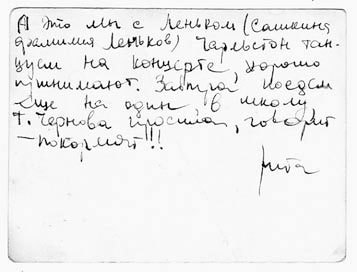 А это мы с Леньком (Сашкина
фамилия Леньков) Чарльстон тан-
цуем на концерте, хорошо
принимают. Завтра поедем
еще на один, в школу,
т. Чернова просила, говорят
— покормят!!!
Рита